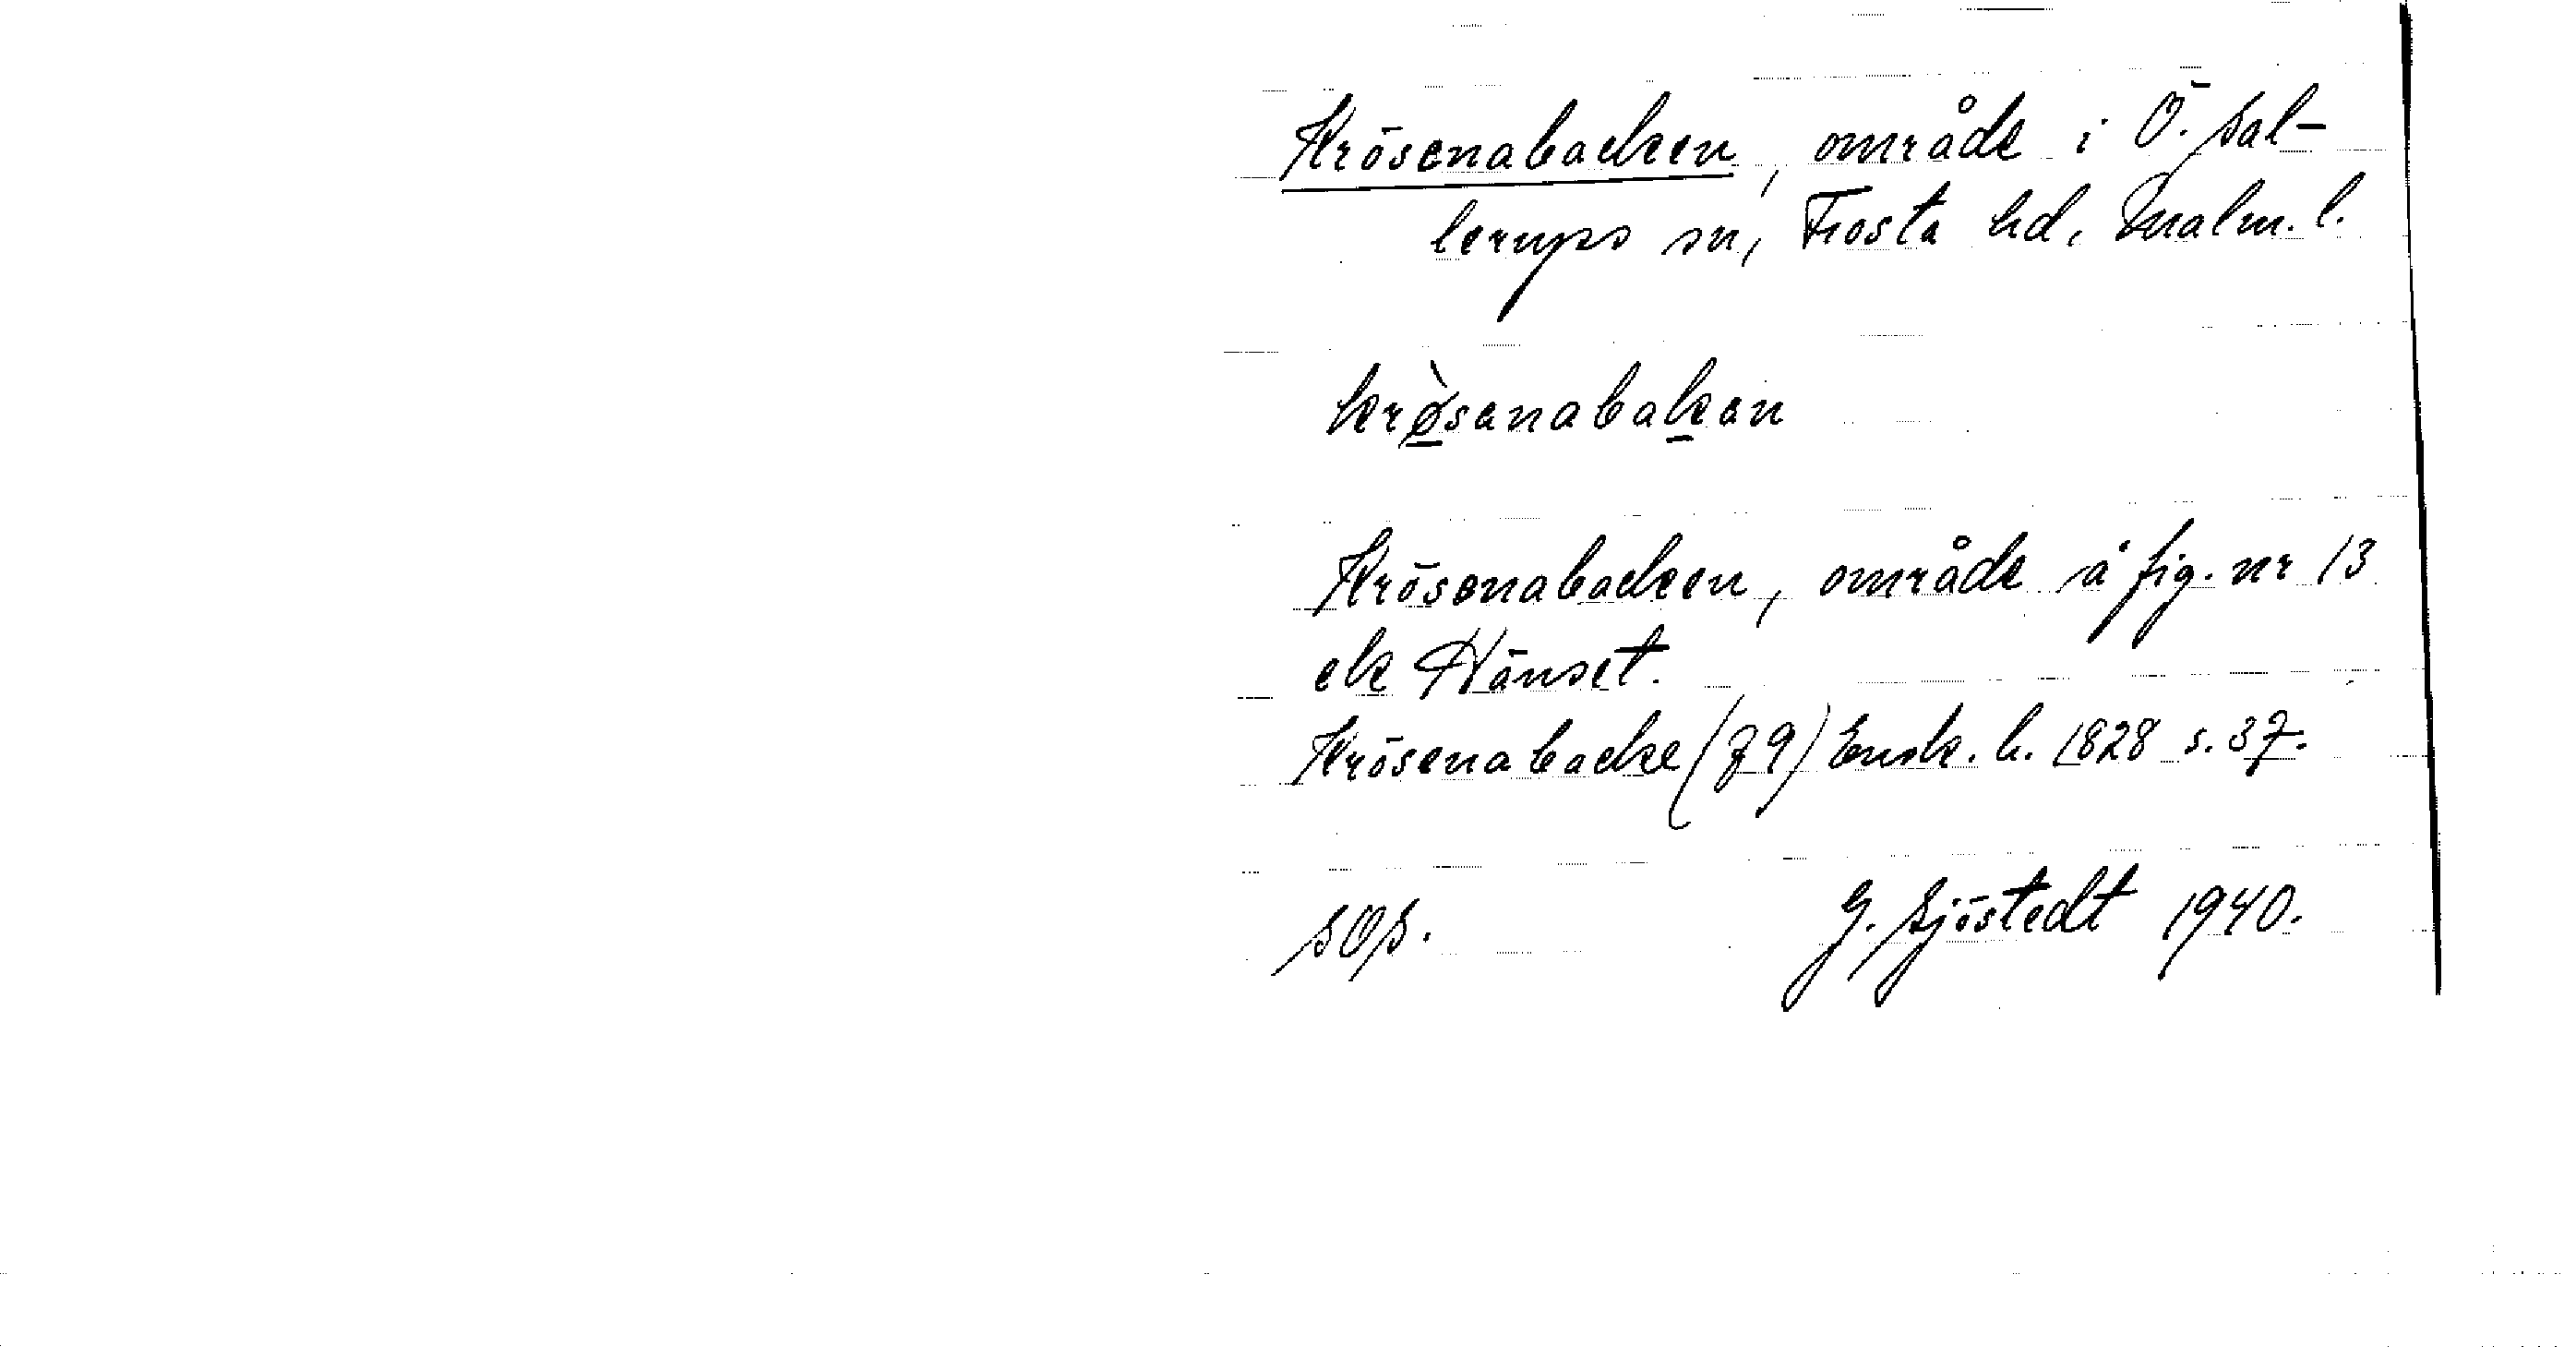 Krösenabacken, område i Ö. Sal-
lerups sn, Frosta hd, Malm. l.
krø̀sanabakan
Krösenabacken, område å fig. nr 13
ek Hänset.
Krösenabacke (79) Ensk. h. 1828 s. 37.
SOS. G. Sjöstedt 1940.